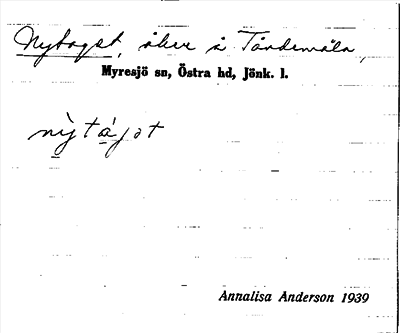 Nytaget, åker å Tåndemåla,
Myresjö sn, Östra hd, Jönk. l.
nỳtájɘt
Annalisa Anderson 1939